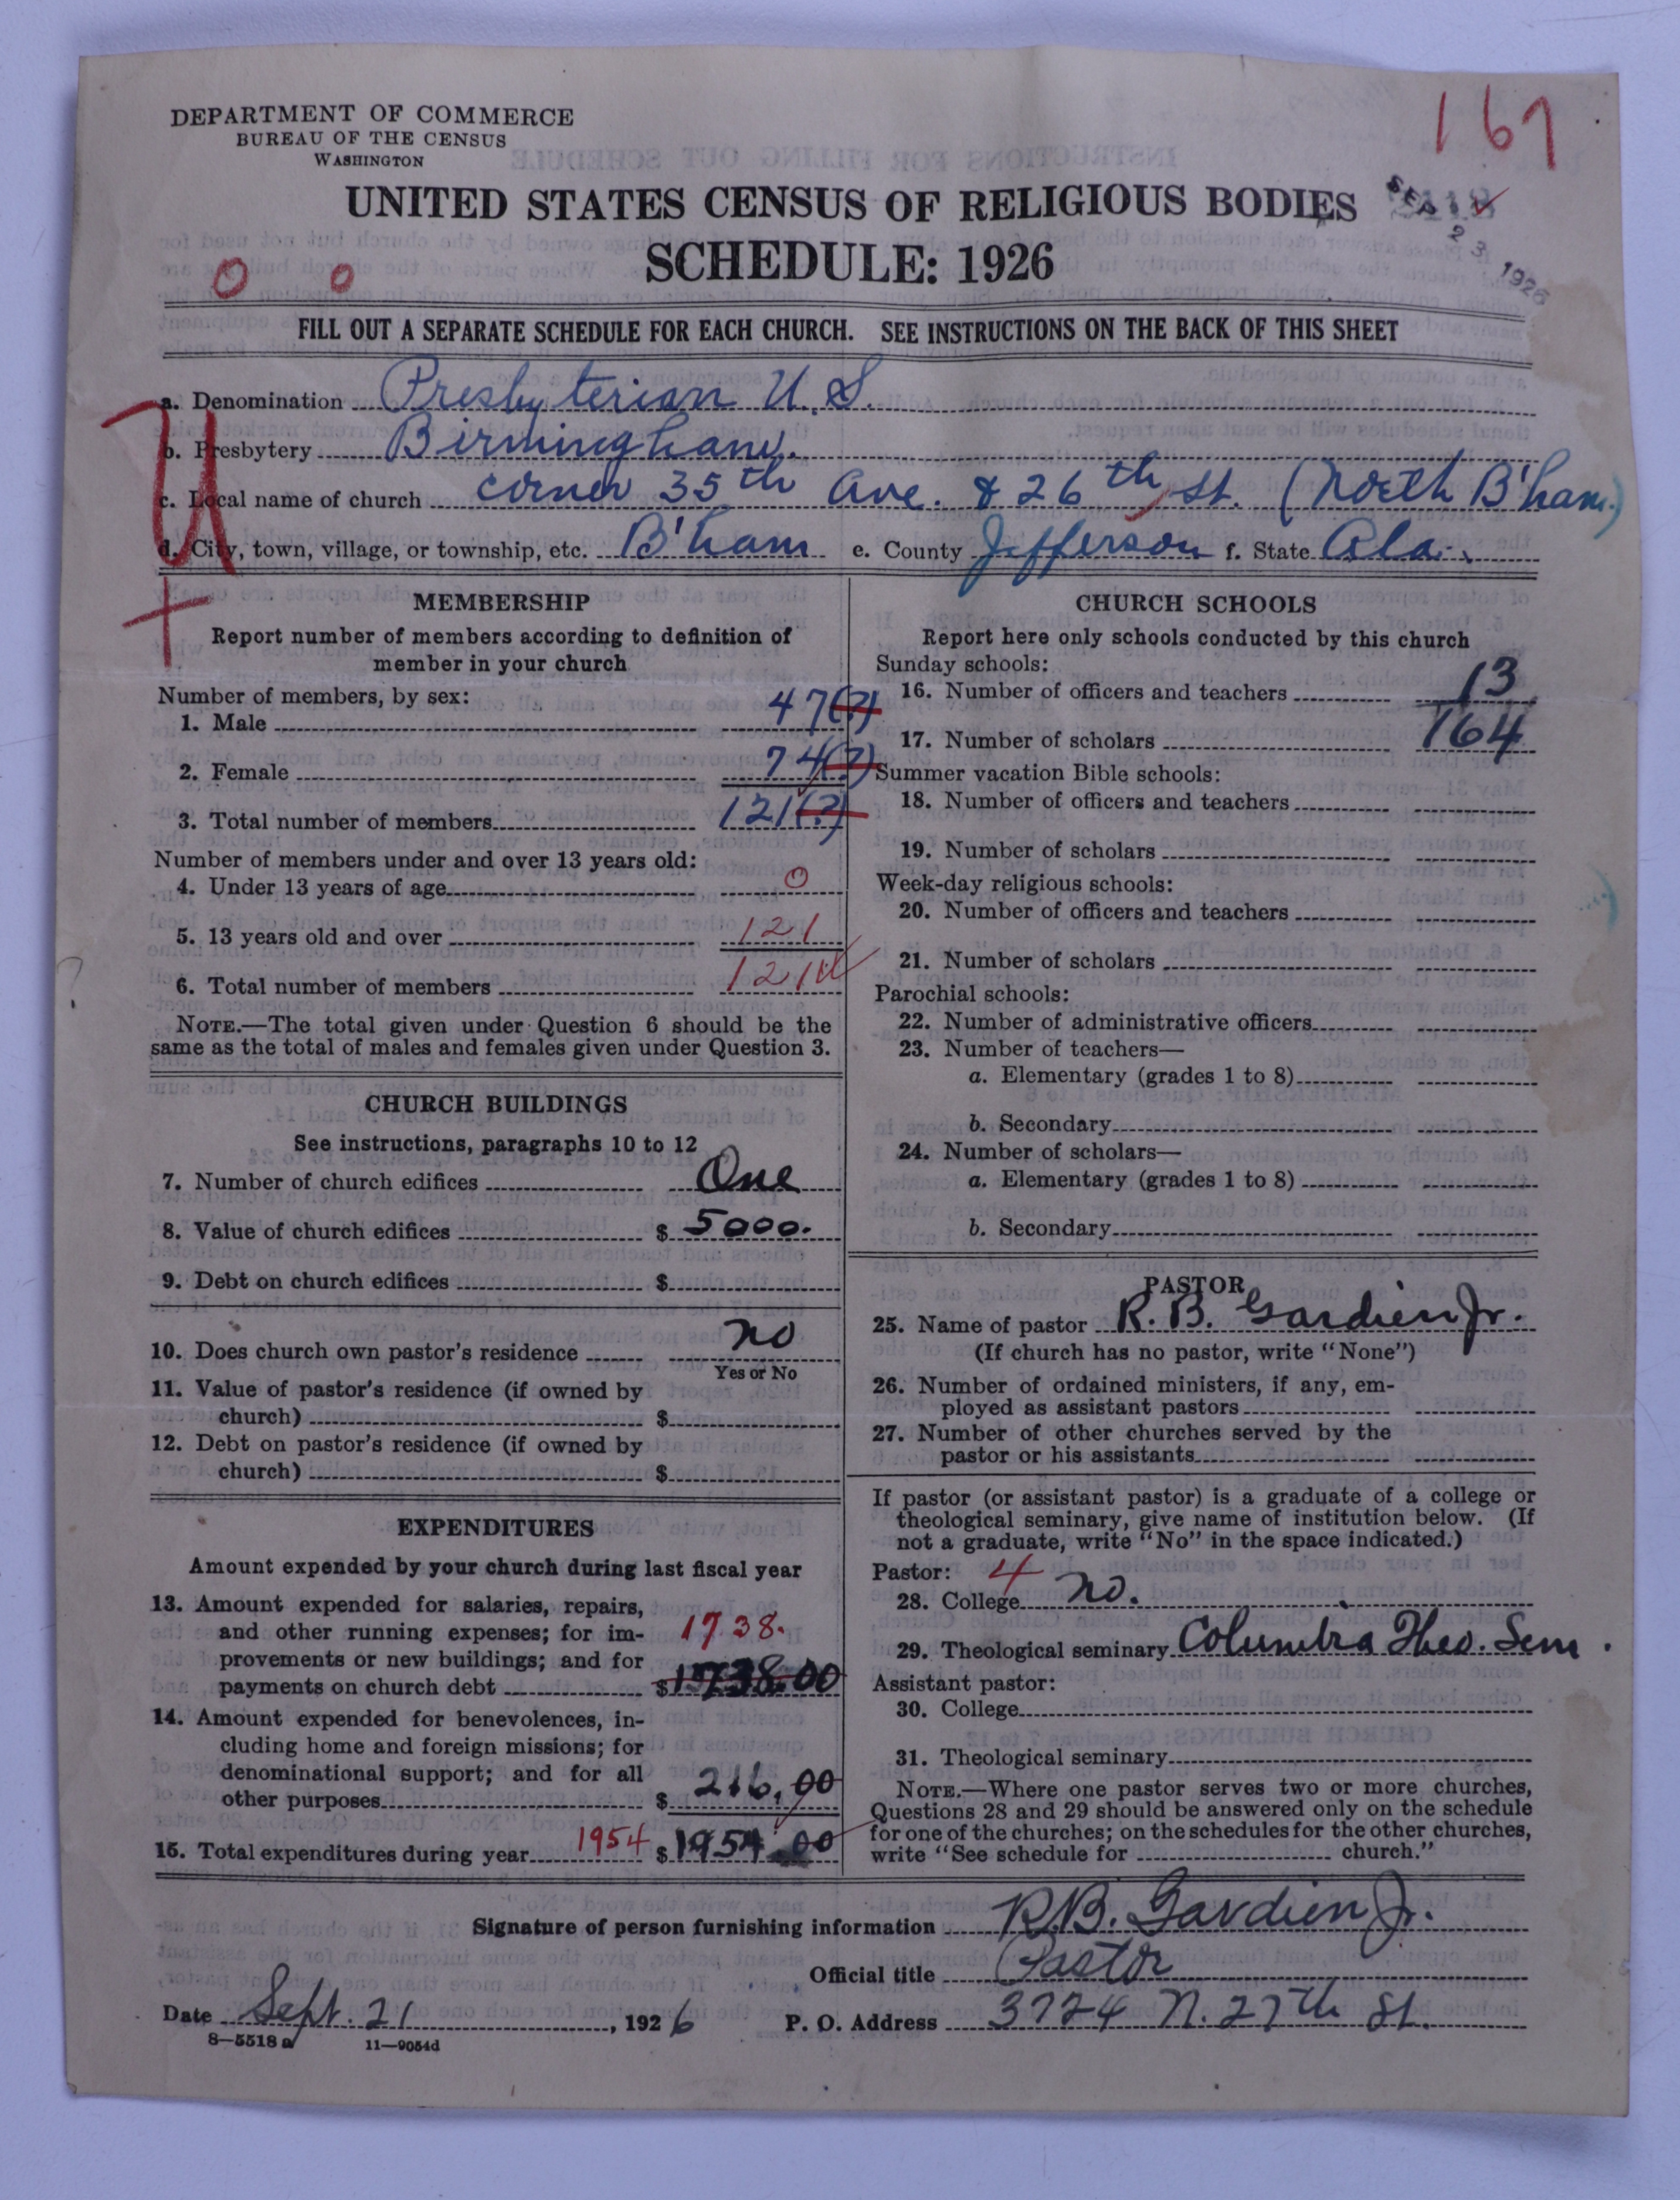 DEPARTMENT OF COMMERCE
BUREAU OF THE CENSUS
WASHINGTON
167
UNITED STATES CENSUS OF RELIGIOUS BODIES
SEP 23 1926
SCHEDULE: 1926
0 0
FILL OUT A SEPARATE SCHEDULE FOR EACH CHURCH. SEE INSTRUCTIONS ON THE BACK OF THIS SHEET
a. Denomination Presbyterian U.S.
b. Presbytery Birmingham.
c. Local name of church corner 35th Ave. & 26th St. (North B'ham.)
d. City, town, village, or township, etc. B'ham e. County Jefferson f. State Ala.
MEMBERSHIP
Report number of members according to definition of
member in your church
Number of members, by sex:
1. Male 47(?)
2. Female 74(?)
3. Total number of members 121(?)
Number of members under and over 13 years old:
4. Under 13 years of age 0
5. 13 years old and over 121
6. Total number of members 121
NOTE.—The total given under Question 6 should be the
same as the total of males and females given under Question 3.
CHURCH BUILDINGS
See instructions, paragraphs 10 to 12
7. Number of church edifices One
8. Value of church edifices $ 5000.
9. Debt on church edifices $
10. Does church own pastor's residence no
Yes or No
11. Value of pastor's residence (if owned by
church) $
12. Debt on pastor's residence (if owned by
church) $
EXPENDITURES
Amount expended by your church during last fiscal year
13. Amount expended for salaries, repairs,
and other running expenses; for im-
provements or new buildings; and for
1738.
payments on church debt $1738.00
14. Amount expended for benevolences, in-
cluding home and foreign missions; for
denominational support; and for all
other purposes $ 216.00
15. Total expenditures during year 1954 $1954.00
CHURCH SCHOOLS
Report here only schools conducted by this church
Sunday schools:
16. Number of officers and teachers 13
17. Number of scholars 164
Summer vacation Bible schools:
18. Number of officers and teachers
19. Number of scholars
Week-day religious schools:
20. Number of officers and teachers
21. Number of scholars
Parochial schools:
22. Number of administrative officers
23. Number of teachers—
a. Elementary (grades 1 to 8)
b. Secondary
24. Number of scholars—
a. Elementary (grades 1 to 8)
b. Secondary
PASTOR
25. Name of pastor R. B. Gardien Jr.
(If church has no pastor, write "None")
26. Number of ordained ministers, if any, em-
ployed as assistant pastors
27. Number of other churches served by the
pastor or his assistants
If pastor (or assistant pastor) is a graduate of a college or
theological seminary, give name of institution below. (If
not a graduate, write "No" in the space indicated.)
Pastor: 4
28. College no.
29. Theological seminary Columbia Theo. Sem.
Assistant pastor:
30. College
31. Theological seminary
NOTE.—Where one pastor serves two or more churches,
Questions 28 and 29 should be answered only on the schedule
for one of the churches; on the schedules for the other churches,
write "See schedule for church."
Signature of person furnishing information R.B. Gardien Jr.
Official title Pastor
Date Sept. 21, 1926 P. O. Address 3724 N. 27th St.
8—5518 a 11—9054d